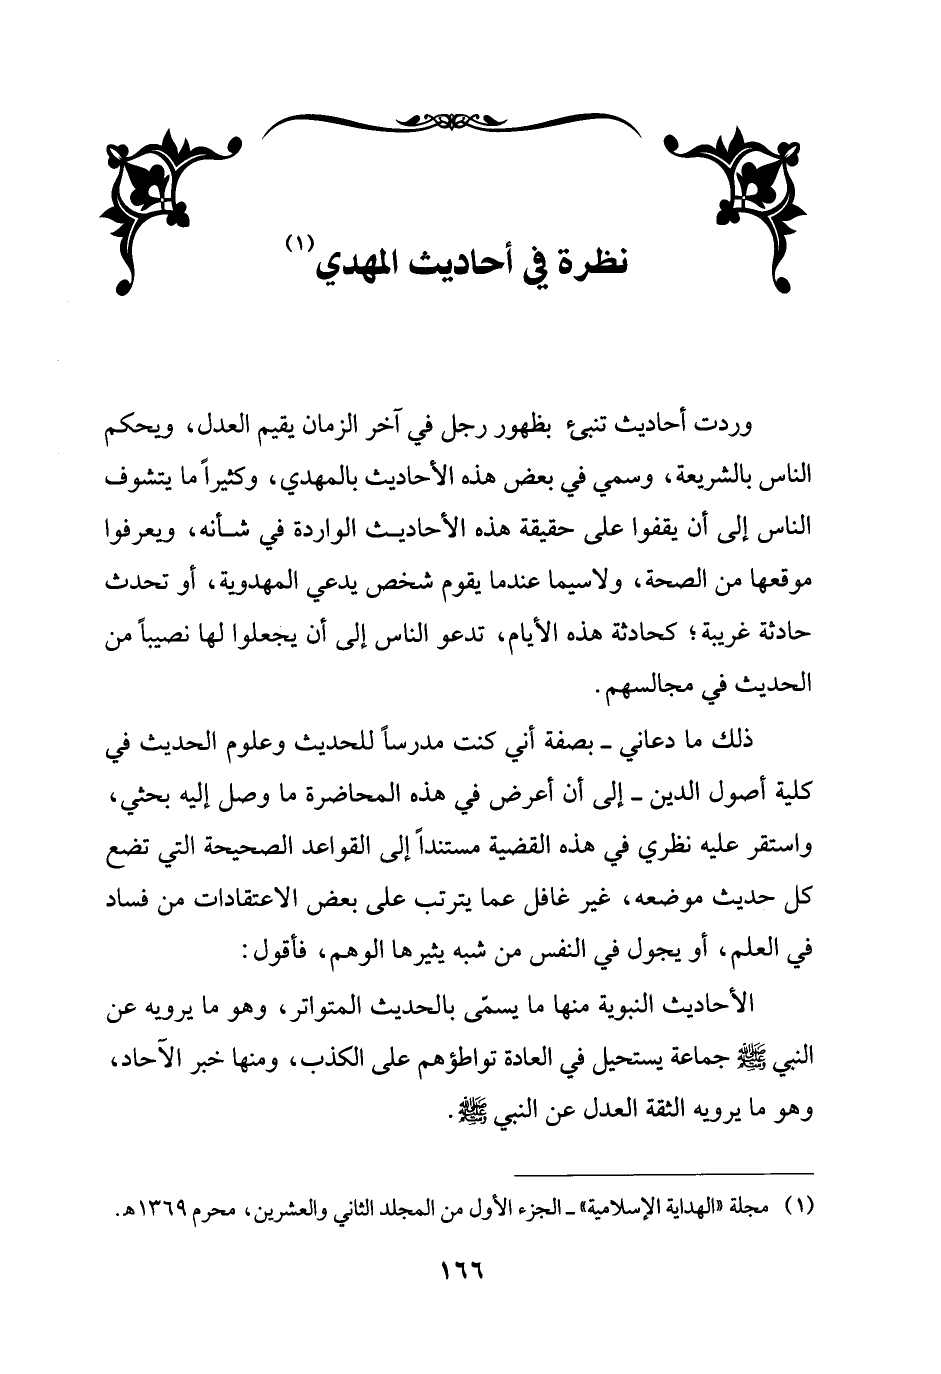 نظرة في أحاديث المهدي (١)
وردت أحاديث تنبئ بظهور رجل في آخر الزمان يقيم العدل، ويحكم
الناس بالشريعة، وسمي في بعض هذه الأحاديث بالمهدي، وكثيراً ما يتشوف
الناس إلى أن يقفوا على حقيقة هذه الأحاديث الواردة في شأنه، ويعرفوا
موقعها من الصحة، ولاسيما عندما يقوم شخص يدعي المهدوية، أو تحدث
حادثة غريبة؛ كحادثة هذه الأيام، تدعو الناس إلى أن يجعلوا لها نصيباً من
الحديث في مجالسهم.
ذلك ما دعاني - بصفة أني كنت مدرساً للحديث وعلوم الحديث في
كلية أصول الدين - إلى أن أعرض في هذه المحاضرة ما وصل إليه بحثي،
واستقر عليه نظري في هذه القضية مستنداً إلى القواعد الصحيحة التي تضع
كل حديث موضعه، غير غافل عما يترتب على بعض الاعتقادات من فساد
في العلم، أو يجول في النفس من شبه يثيرها الوهم، فأقول:
الأحاديث النبوية منها ما يسمّى بالحديث المتواتر، وهو ما يرويه عن
النبي ﷺ جماعة يستحيل في العادة تواطؤهم على الكذب، ومنها خبر الآحاد،
وهو ما يرويه الثقة العدل عن النبي ﷺ.
(١) مجلة «الهداية الإسلامية» - الجزء الأول من المجلد الثاني والعشرين، محرم ١٣٦٩هـ.
١٦٦